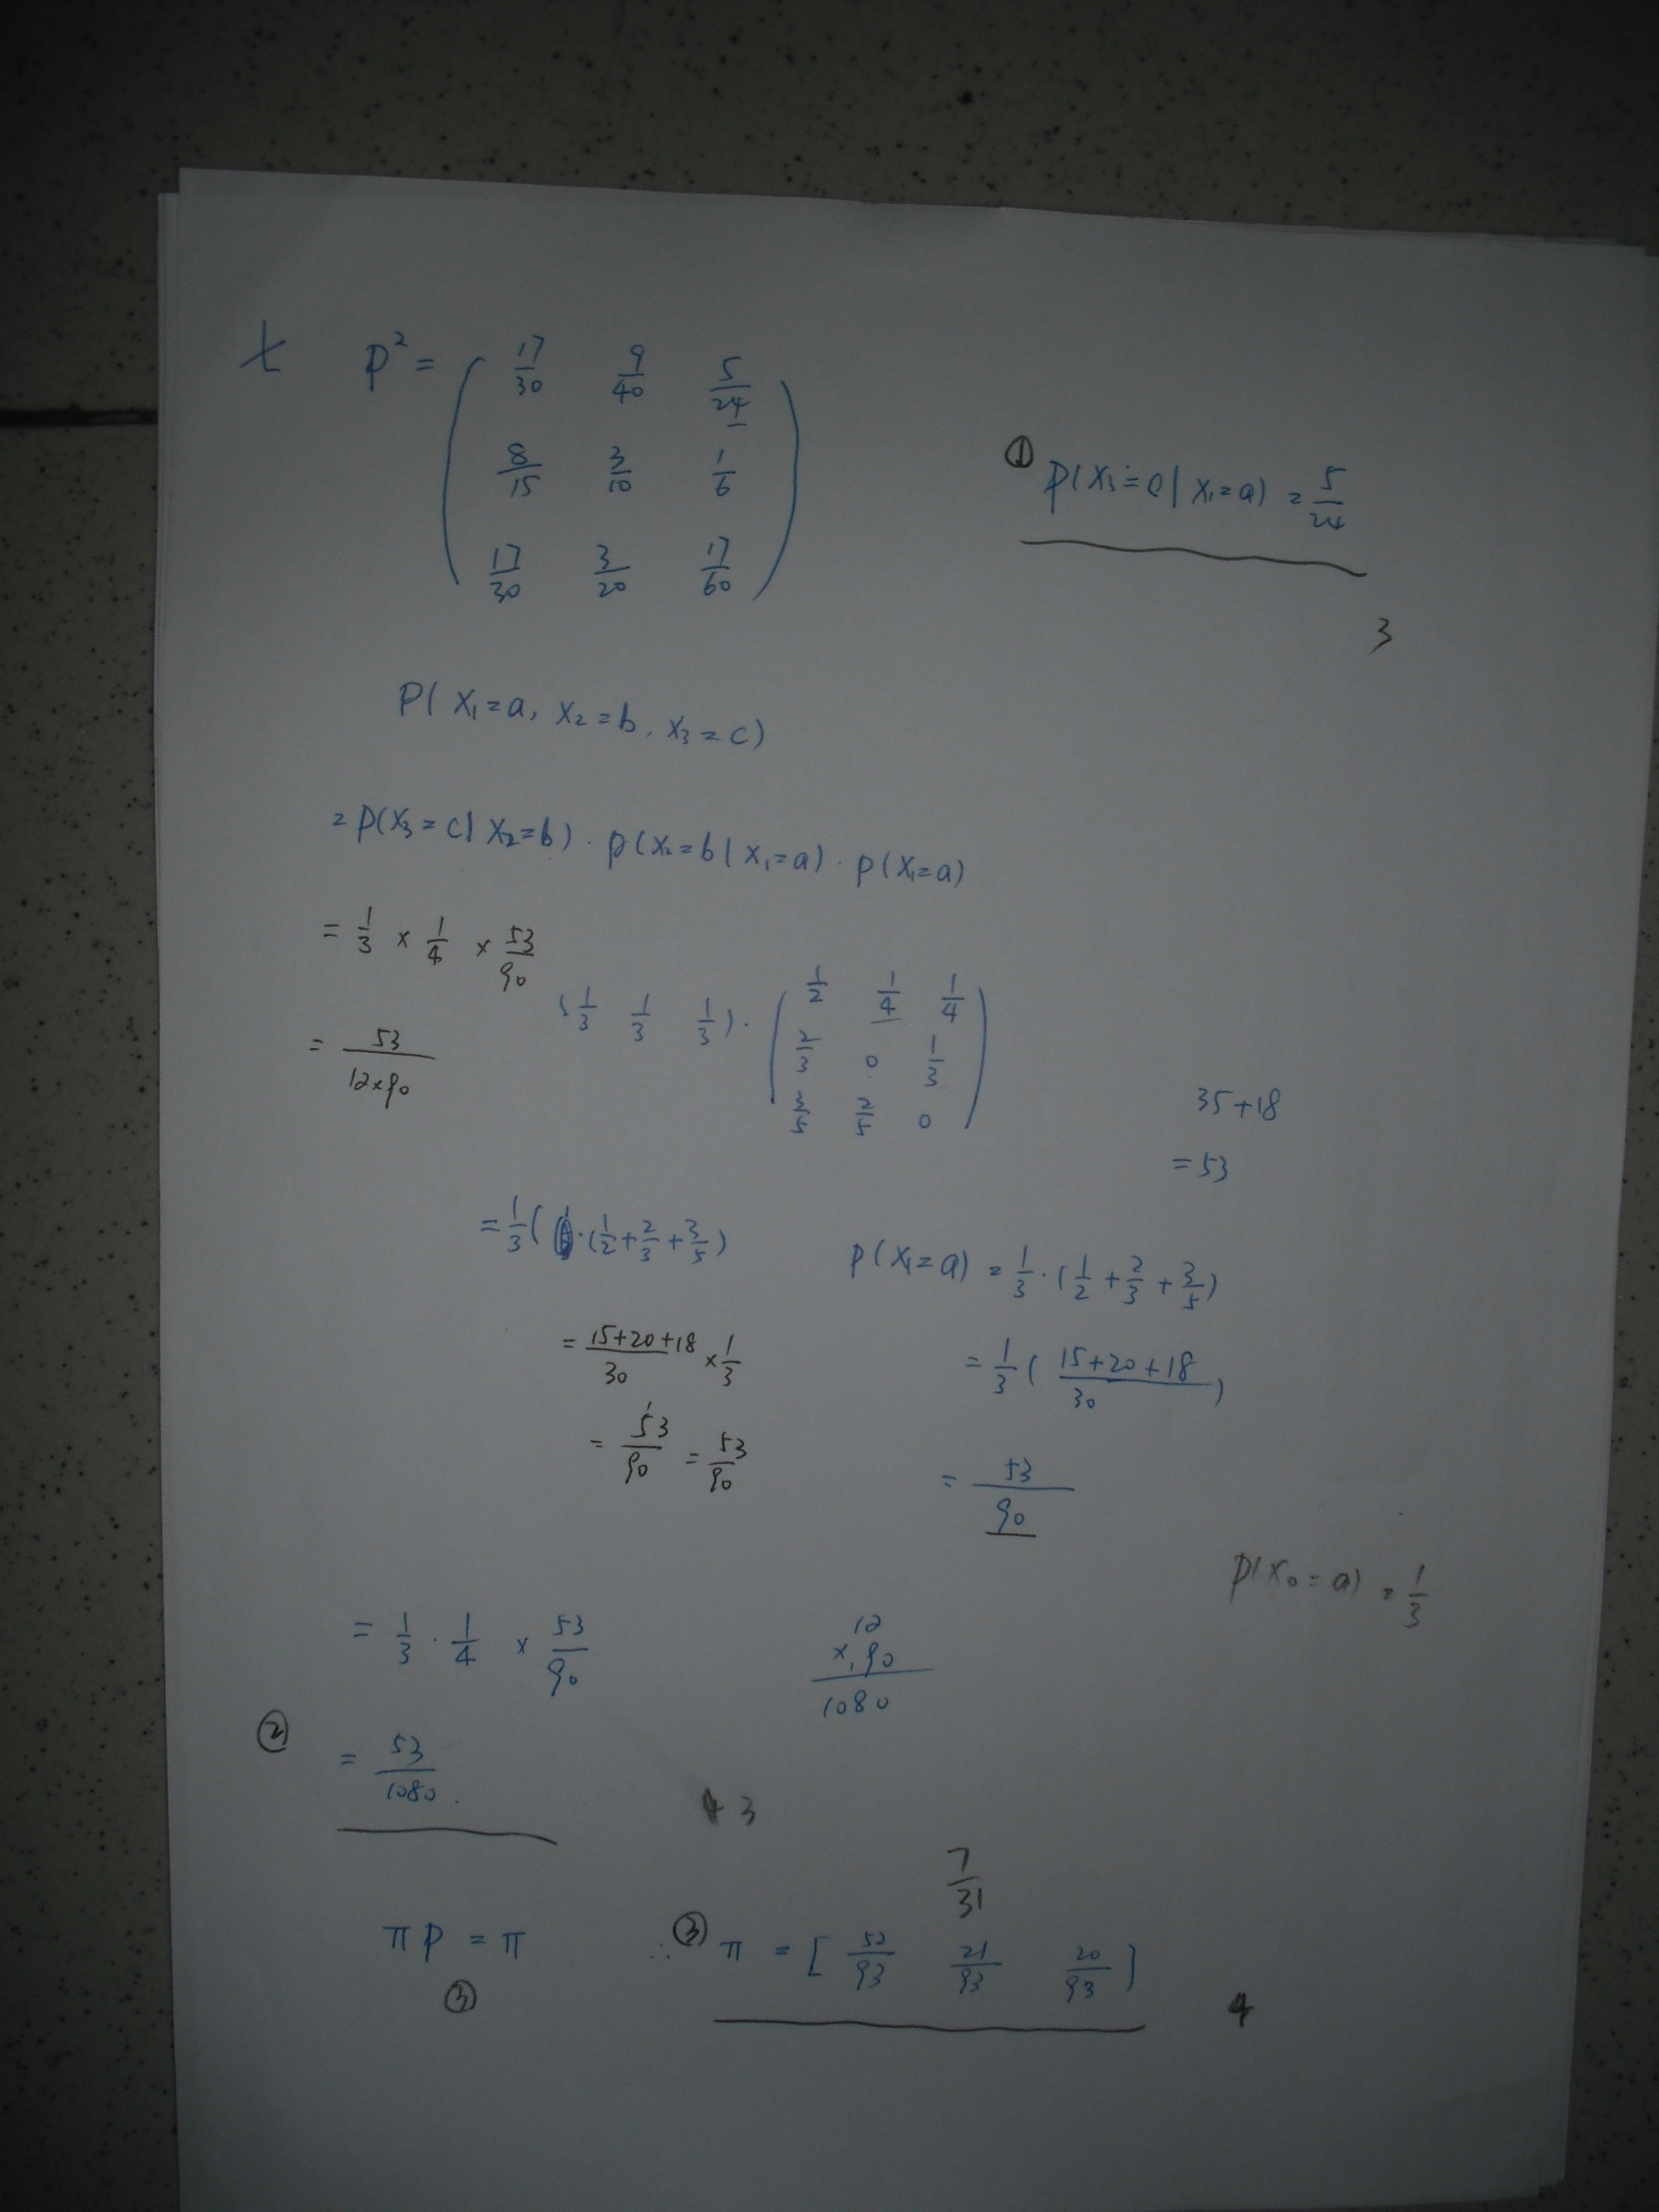 七 P² = ( 17/30 9/40 5/24
8/15 3/10 1/6
17/30 3/20 17/60 )
① P(X₃=c | X₁=a) = 5/24
3
P( X₁=a, X₂=b, X₃=c)
= P(X₃=c | X₂=b) · P(X₂=b | X₁=a) · P(X₁=a)
= 1/3 × 1/4 × 53/90
= 53/12×90
(1/3 1/3 1/3) · ( 1/2 1/4 1/4
2/3 0 1/3
3/5 2/5 0 )
35+18
= 53
= 1/3 ( · (1/2 + 2/3 + 3/5)
= 15+20+18/30 × 1/3
= 53/90 = 53/90
P(X₁=a) = 1/3 · (1/2 + 2/3 + 3/5)
= 1/3 ( 15+20+18/30 )
= 53/90
P(X₀=a) = 1/3
= 1/3 · 1/4 × 53/90
12
× 90
1080
② = 53/1080 .
3
7/31
πP = π
③
∴ ③ π = [ 52/93 21/93 20/93 ]
4